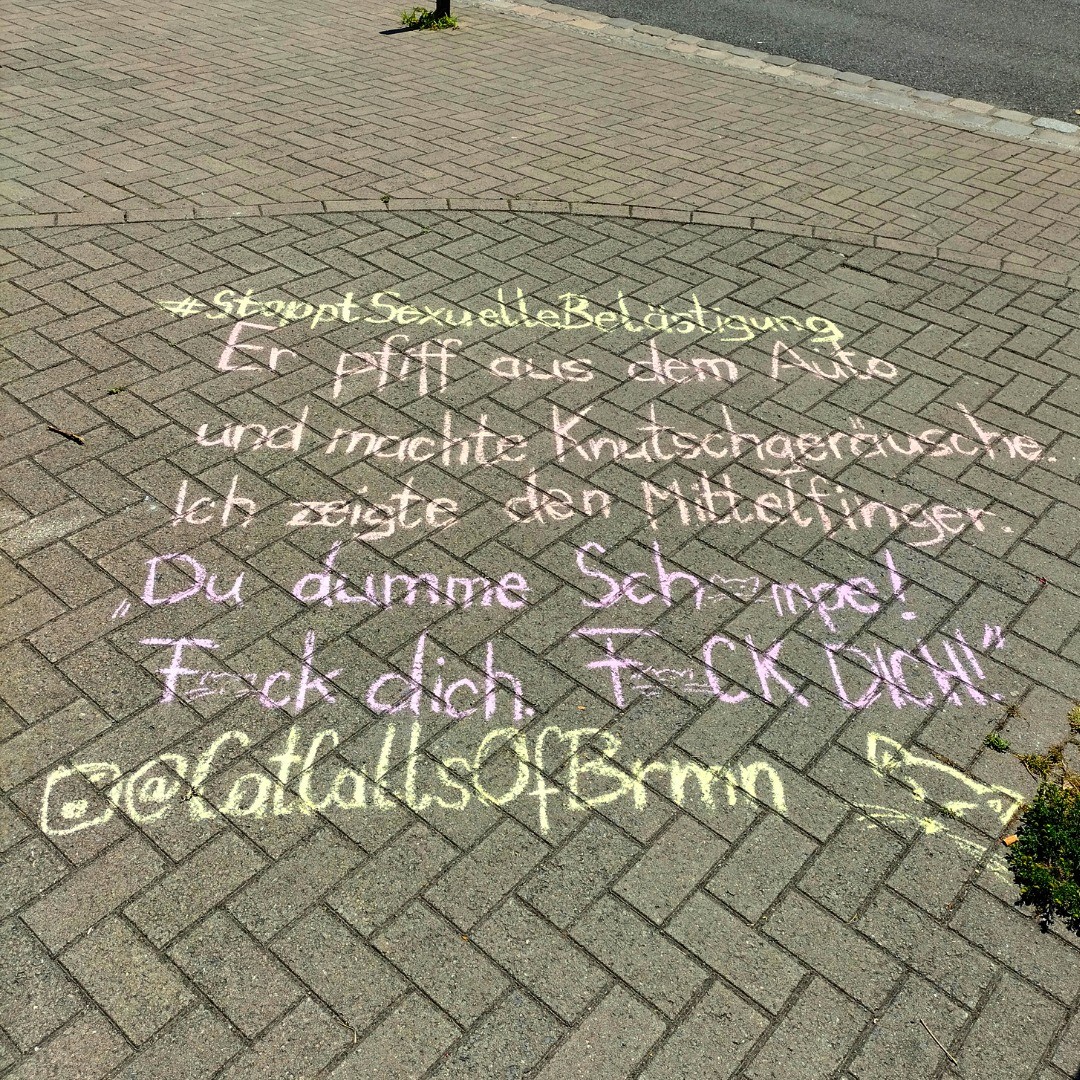 #StopptSexuelleBelästigung
Er pfiff aus dem Auto
und machte Knutschgeräusche.
Ich zeigte den Mittelfinger.
„Du dumme Sch mpe!
F ck dich. F CK DICH!"
@CatCallsOfBrmn